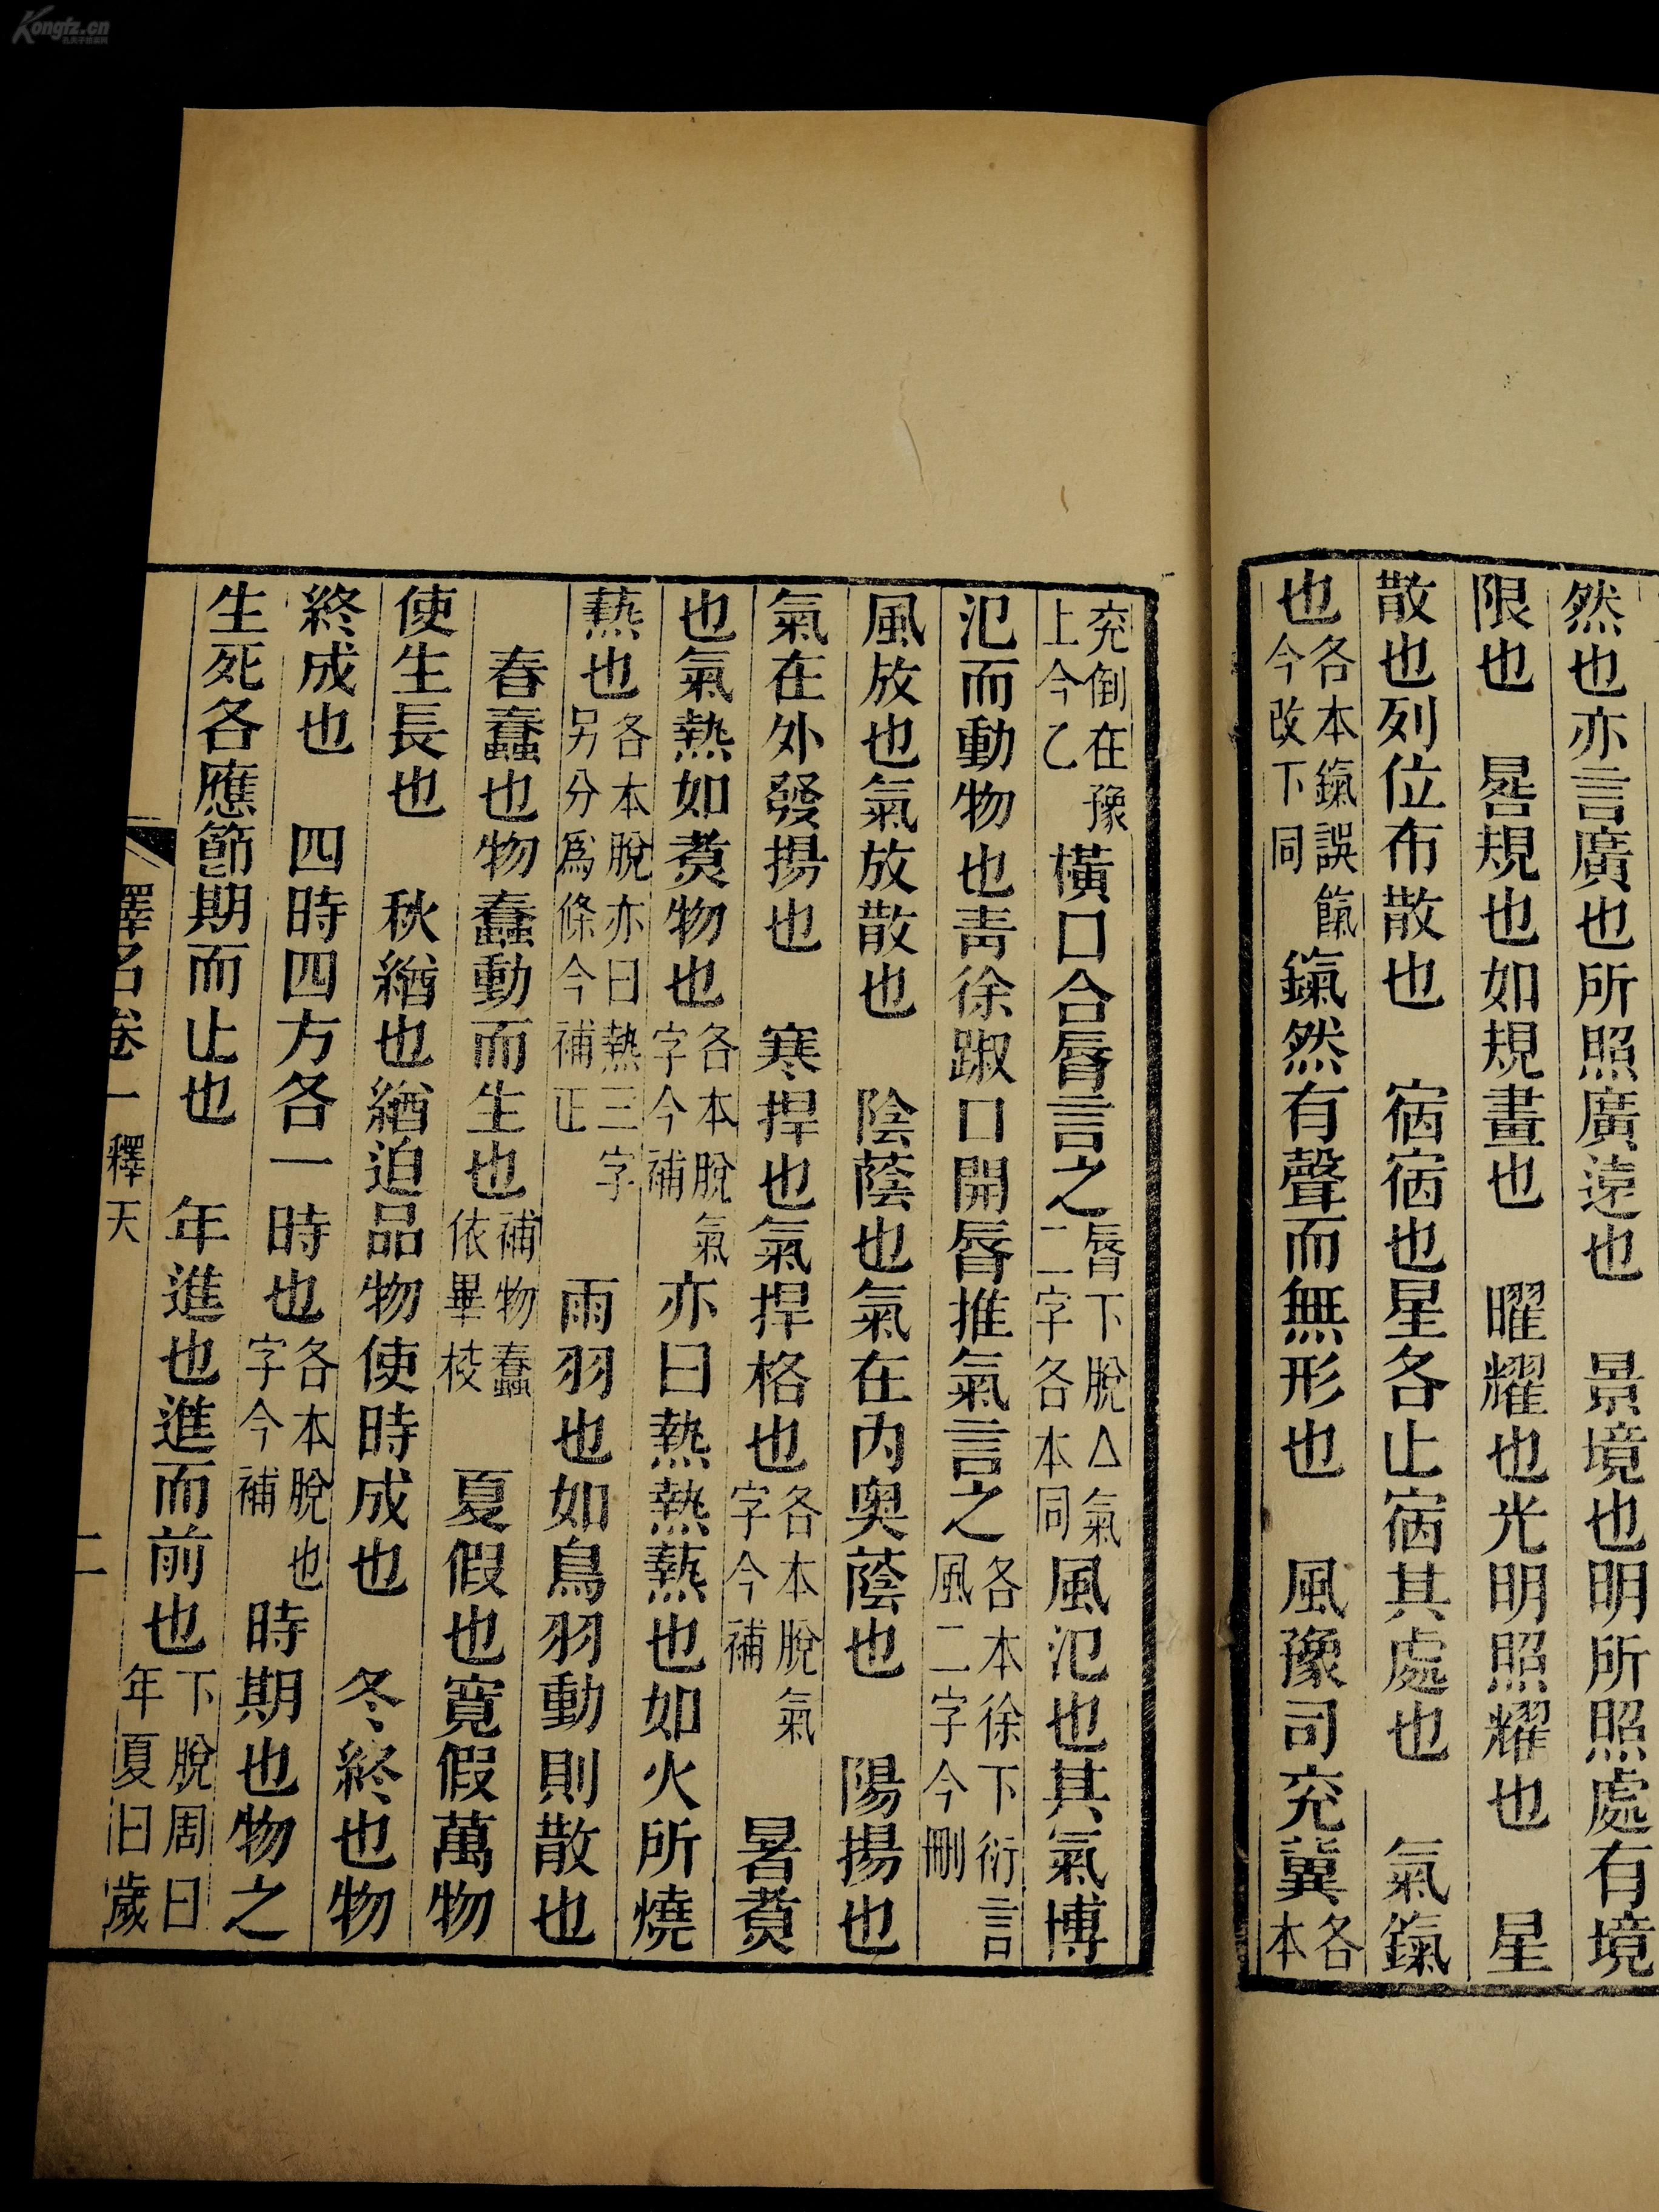 然也亦言廣也所照廣遠也　景境也明所照處有境
限也　晷規也如規畫也　曜耀也光明照耀也　星
散也列位布散也　宿宿也星各止宿其處也　氣鎎
也各本鎎誤餼今改下同鎎然有聲而無形也　風豫司兖冀各本
兖倒在豫上今乙橫口合脣言之脣下脫△氣二字各本同風氾也其氣博
氾而動物也靑徐踧口開脣推氣言之各本徐下衍言風二字今刪
風放也氣放散也　陰蔭也氣在內奧蔭也　陽揚也
氣在外發揚也　寒捍也氣捍格也各本脫氣字今補　暑煑
也氣熱如煑物也各本脫氣字今補　亦曰熱熱爇也如火所燒
爇也各本脫亦曰熱三字另分爲條今補正　雨羽也如鳥羽動則散也
春蠢也物蠢動而生也補物蠢依畢校　夏假也寬假萬物
使生長也　秋緧也緧迫品物使時成也　冬終也物
終成也　四時四方各一時也各本脫也字今補　時期也物之
生死各應節期而止也　年進也進而前也下脫周曰年夏曰歲
釋名卷一 釋天
二
Kongfz.cn